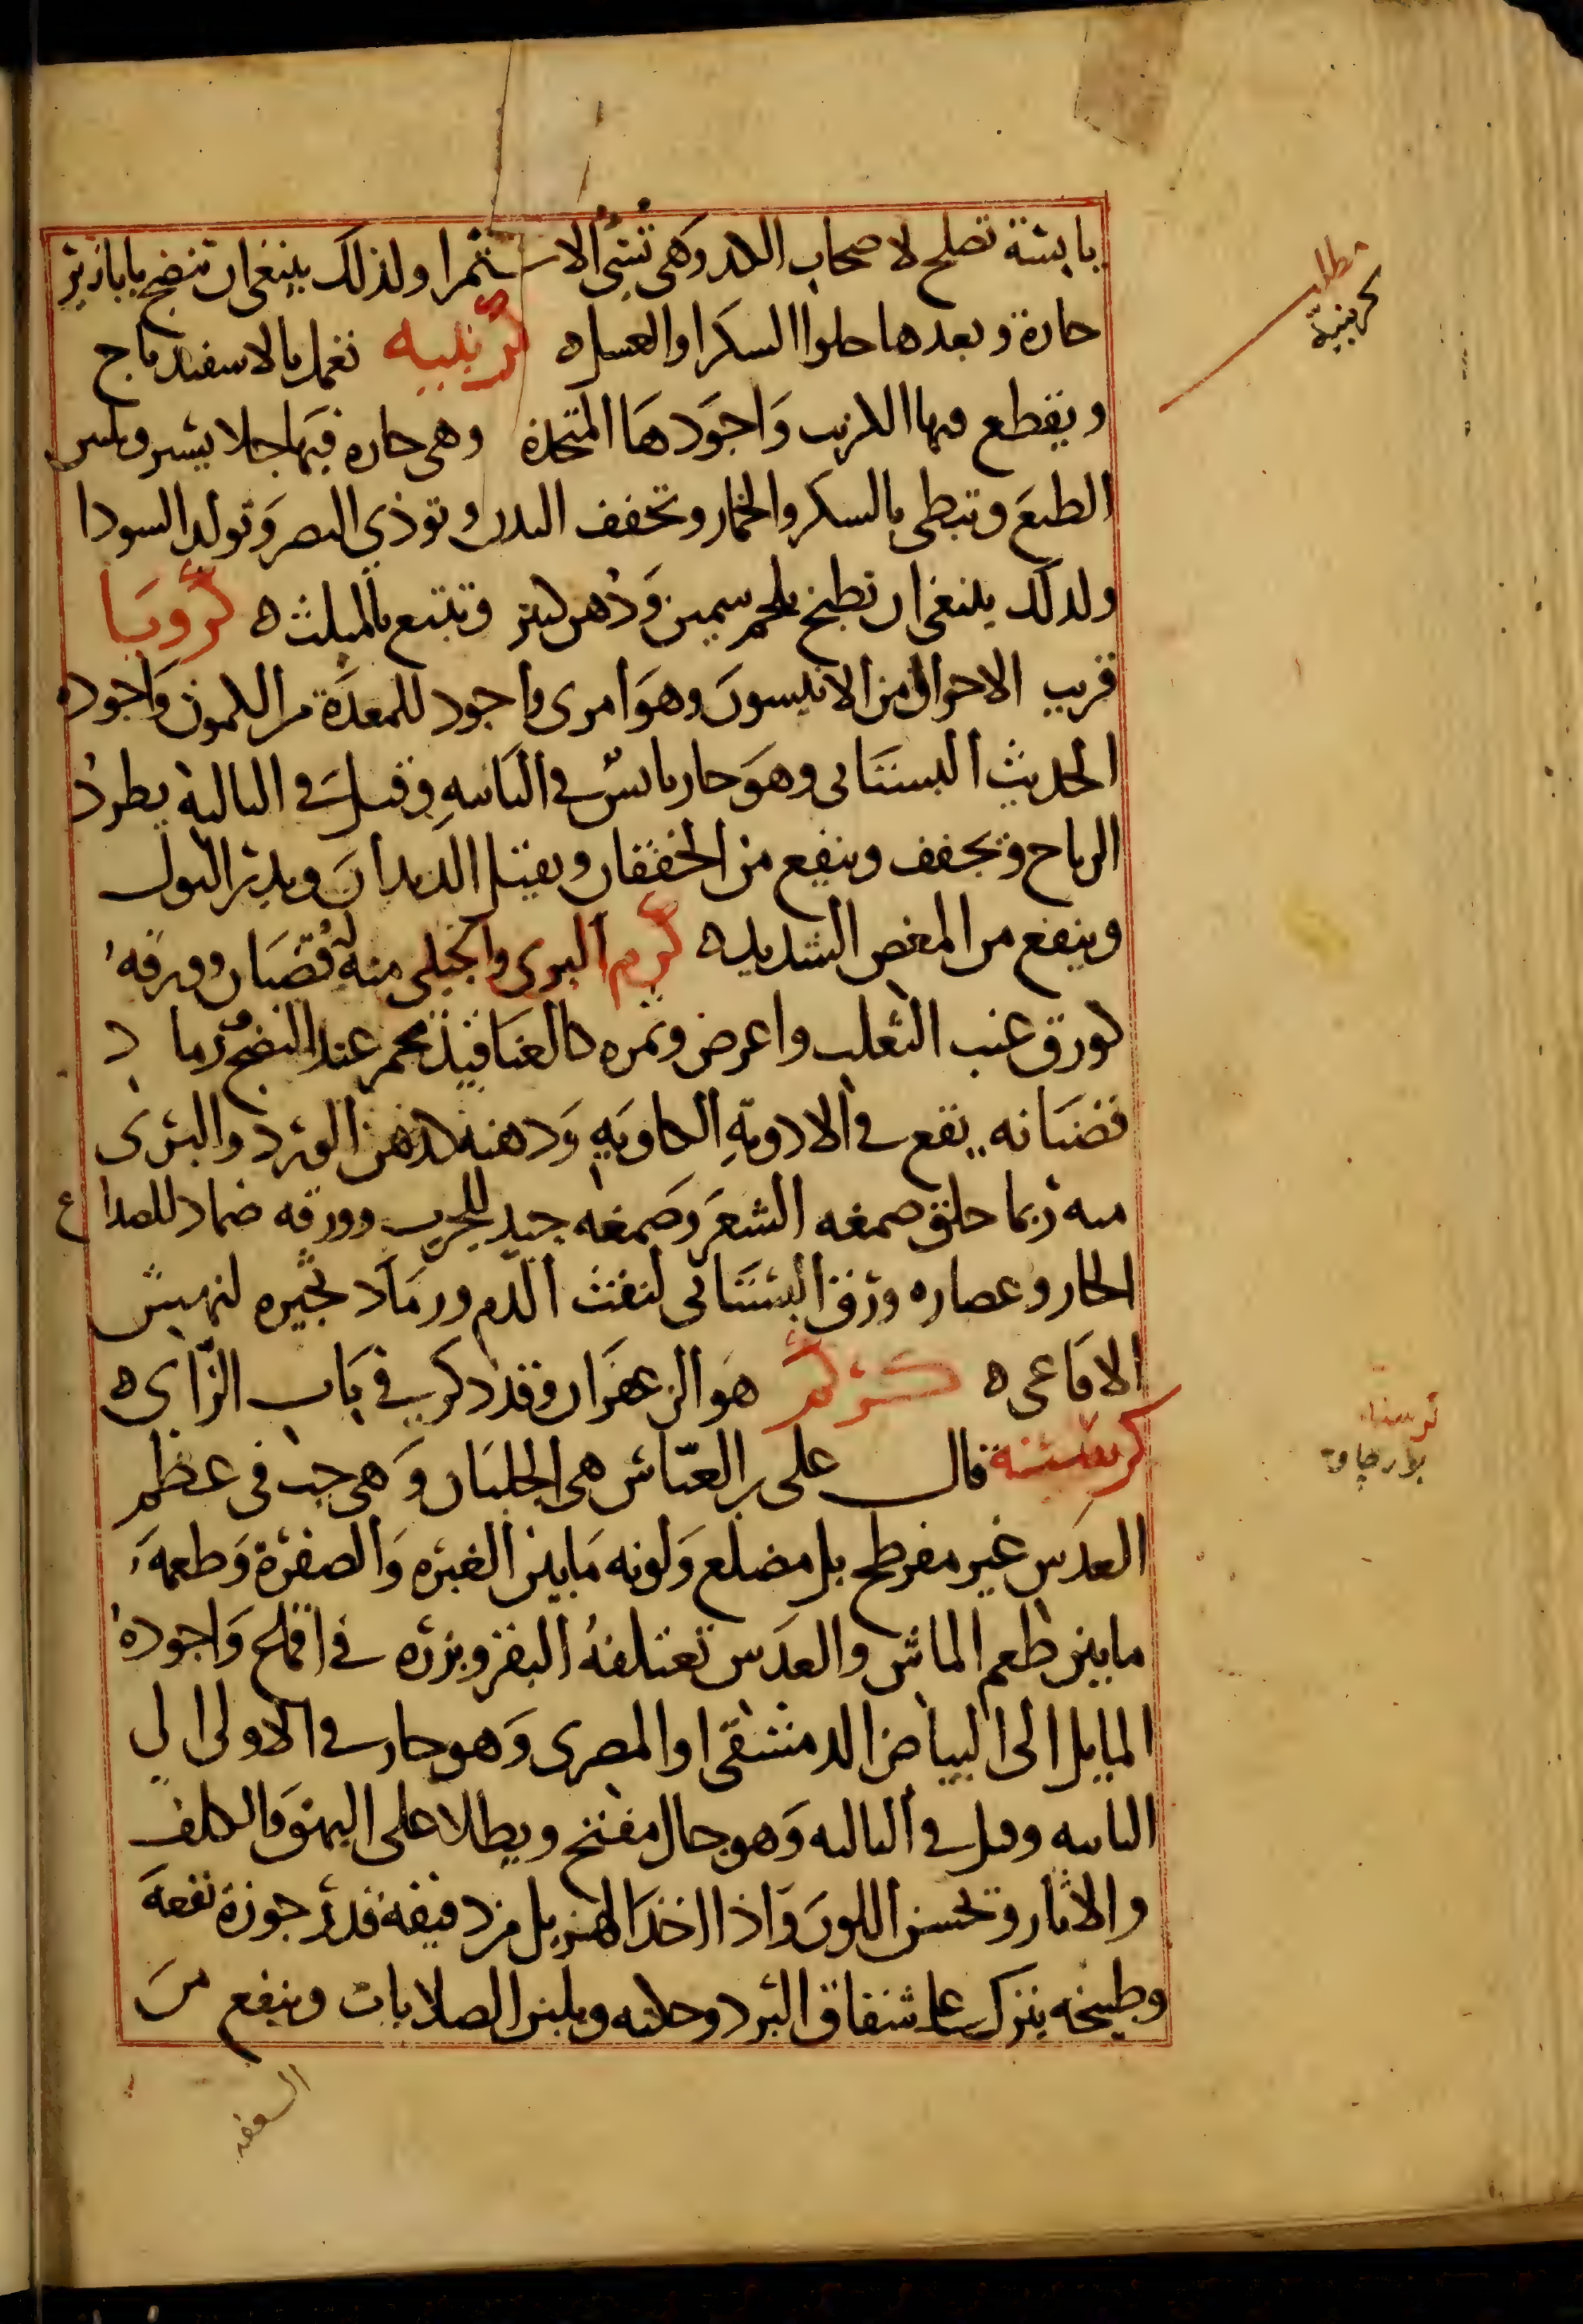 يابسة تصلح لاصحاب الكد وهي تسي الاستمرا ولذلك ينبغي ان تنضج بابازير
حارة وبعدها حلوا السكر او العسل ه كرنبيه تعمل بالاسفيدباج
ويقطع فيها الكرنب واجودها المتخذه وهي حاره فيها جلا يسير وتلين
الطبع وتبطي بالسكر والخمار وتجفف البدن وتوذي البصر وتولد السودا
ولذلك ينبغي ان تطبخ بلحم سمين ودهن كثير وتتبع بالمثلث ه كرويا
قريب الاحوال من الانيسون وهو امرى واجود للمعدة من الكمون واجوده
الحديث البستاني وهو حار يابس في الثانيه وقيل في الثالثة يطرد
الرياح ويجفف وينفع من الخفقان ويقتل الديدان ويدر البول
وينفع من المغص الشديد ه كرم البري والجبلي منه له قضبان وورقه
كورق عنب الثعلب واعرض وثمره كالعناقيد يحمر عند النضج رماد
قضبانه يقع في الادوية الكاويه ودهنه كدهن الورد والبري
منه ربما حلق صمغه الشعر وصمغه جيد للجرب وورقه ضماد للصداع
الحار وعصاره ورق البستاني لنفث الدم ورماد ثجيره لنهش
الافاعي ه كركم هو الزعفران وقد ذكر في باب الزاي ه
كرسنة قال علي بن العباس هي الجلبان وهي حب في عظم
العدس غير مفرطح بل مضلع ولونه ما بين الغبره والصفرة وطعمه
ما بين طعم الماش والعدس تعتلفه البقر وبزره في اقماع واجوده
المايل الى البياض الدمشقي او المصري وهو حار في الاولى الى
الثانيه وقيل في الثالثه وهو جال مفتح ويطلا على البهق والكلف
والاثار وتحسن اللون واذا اخذ المهزيل من دقيقه قدر جوزة نفعه
وطبيخه ينزل على شقاق البرد وحكته ويلين الصلابات وينفع من
السعفه
مطلب
كرنبية
كرسنه